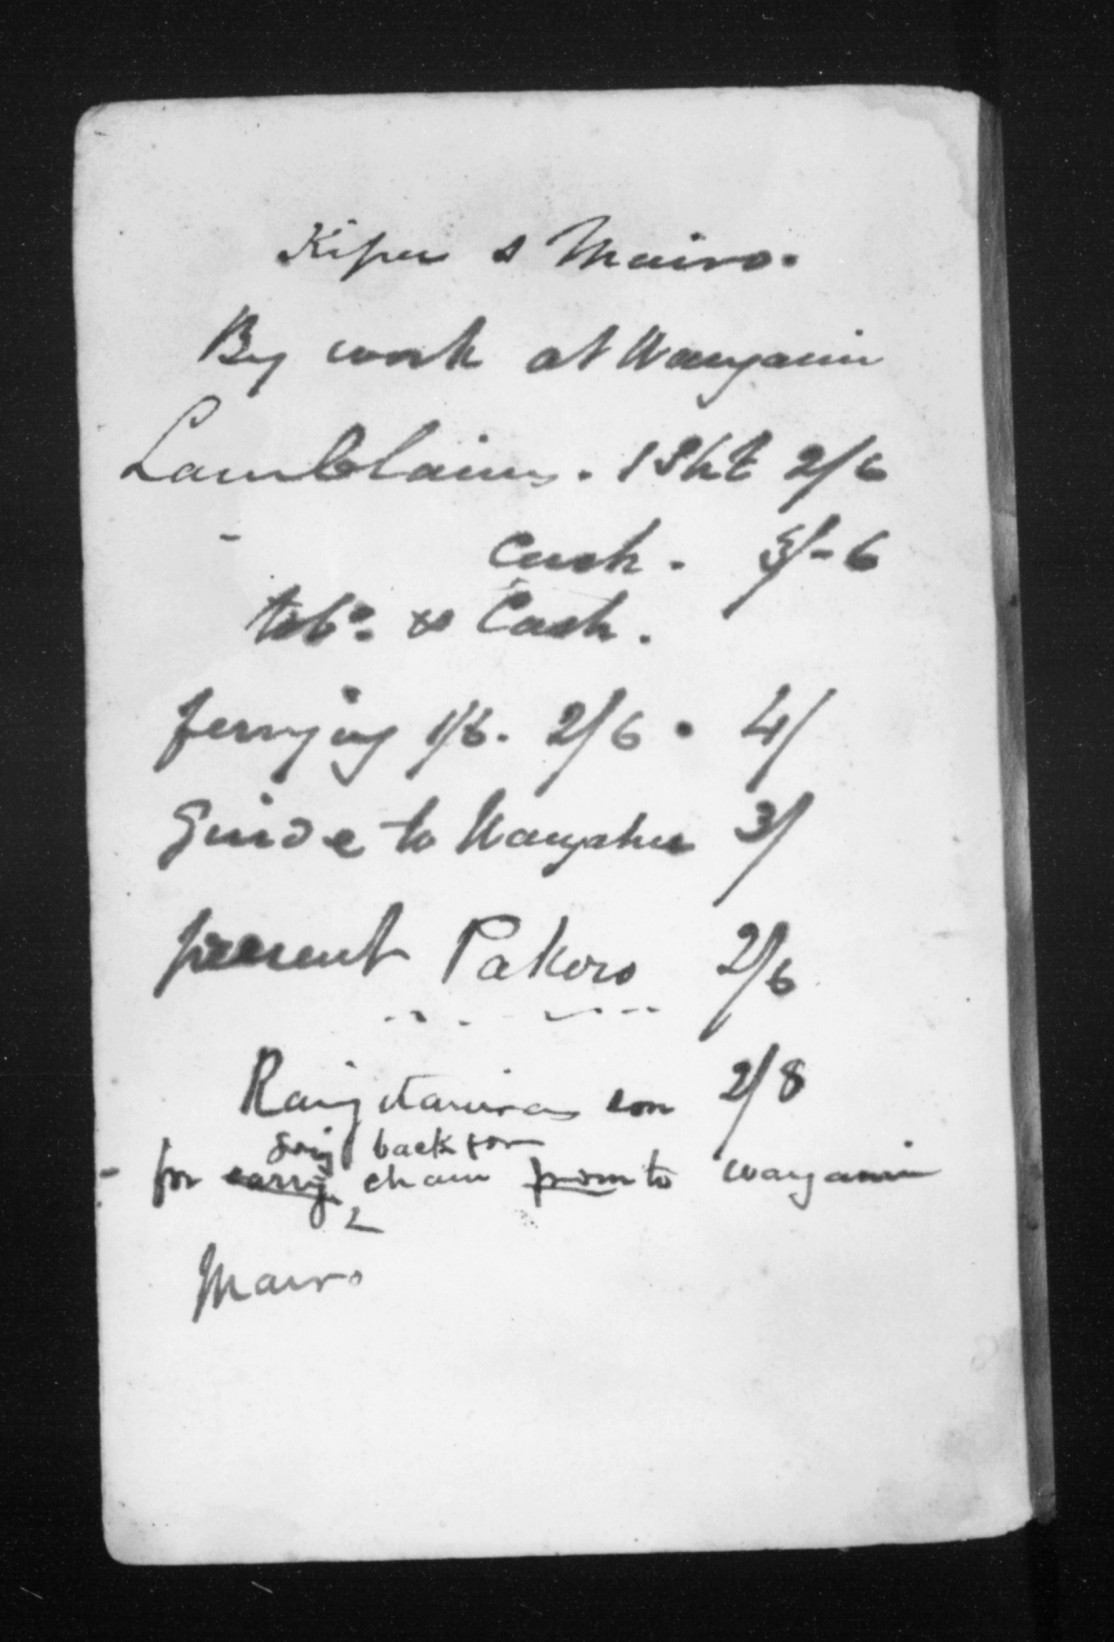 Kipa & Mairo.
By work at Wanganui
Land Claims. 1 Sht 2/6
Cash. 5/-6
tobo. & Cash.
ferrying 1/6. 2/6. 4/
Guide to 3/
present Pakoro 2/6
son 2/8
going back for
for carryg chain from to Wanganui
2
Mairo